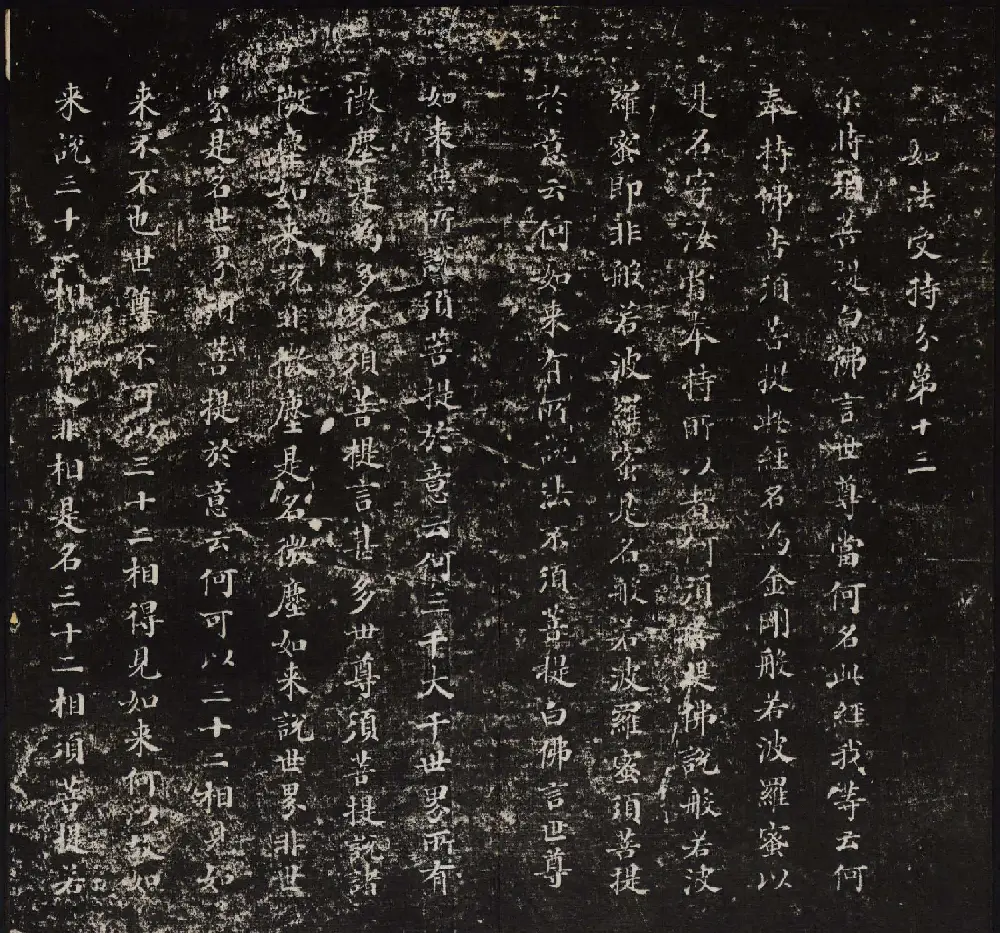 如法受持分第十三
尒時須菩提白佛言世尊當何名此經我等云何
奉持佛告須菩提此經名為金剛般若波羅蜜以
是名字汝當奉持所以者何須菩提佛說般若波
羅蜜即非般若波羅蜜是名般若波羅蜜須菩提
於意云何如来有所說法不須菩提白佛言世尊
如来無所說須菩提於意云何三千大千世界所有
微塵是為多不須菩提言甚多世尊須菩提說諸
微塵如来說非微塵是名微塵如来說世界非世
界是名世界須菩提於意云何可以三十二相見如
来不不也世尊不可以三十二相得見如来何以故如
来說三十二相即是非相是名三十二相須菩提若